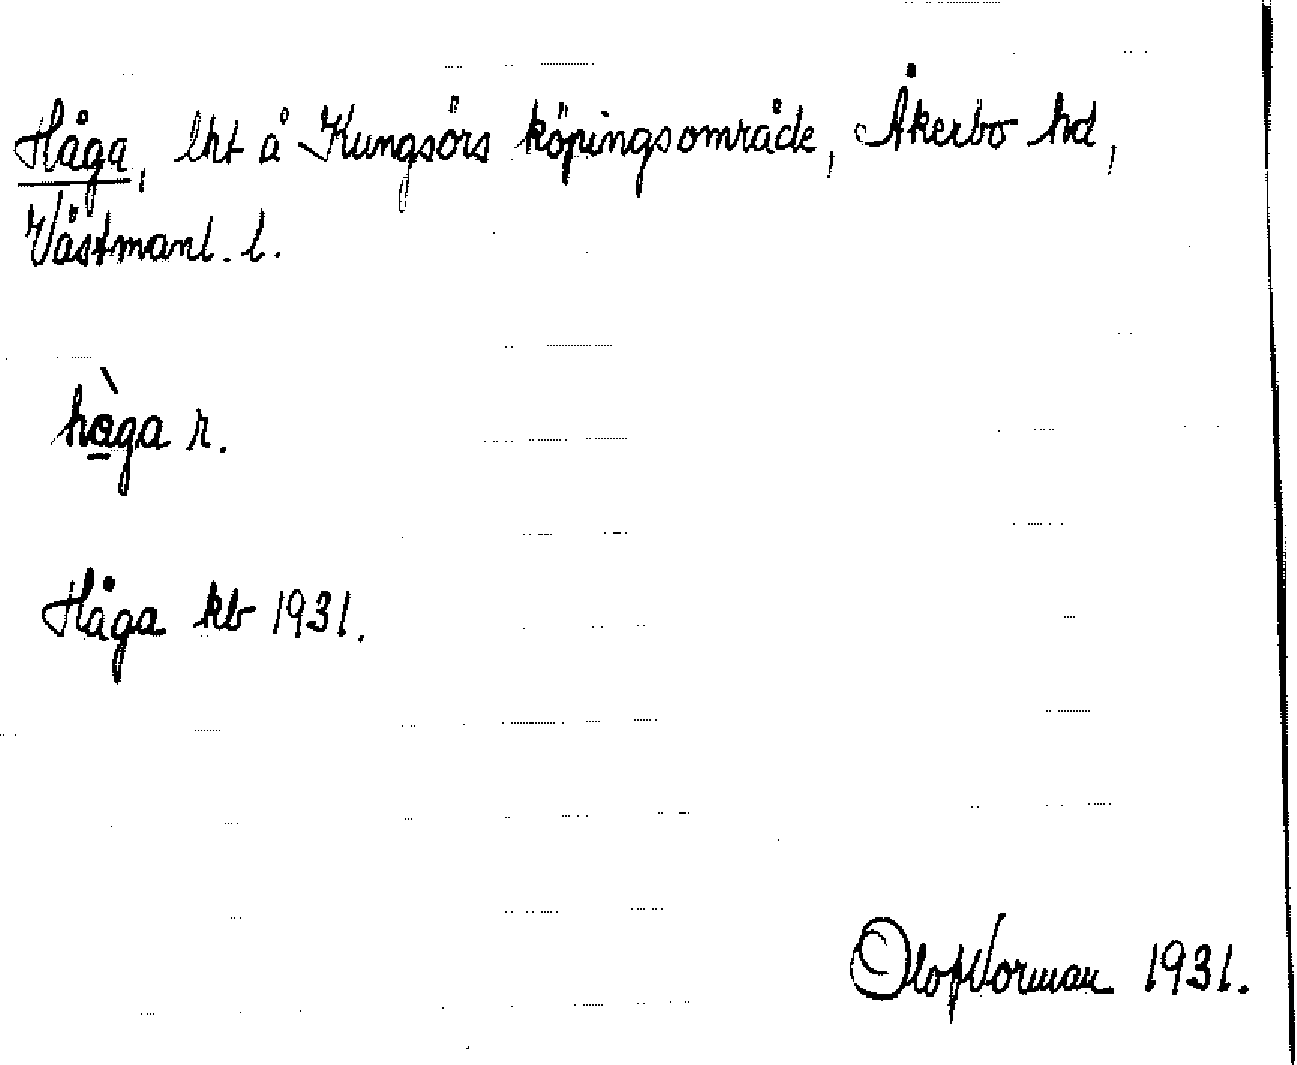 Håga, lht å Kungsörs köpingsområde, Åkerbo hd,
Västmanl. l.
hàga r.
Håga kb 1931.
Olof Vorman 1931.